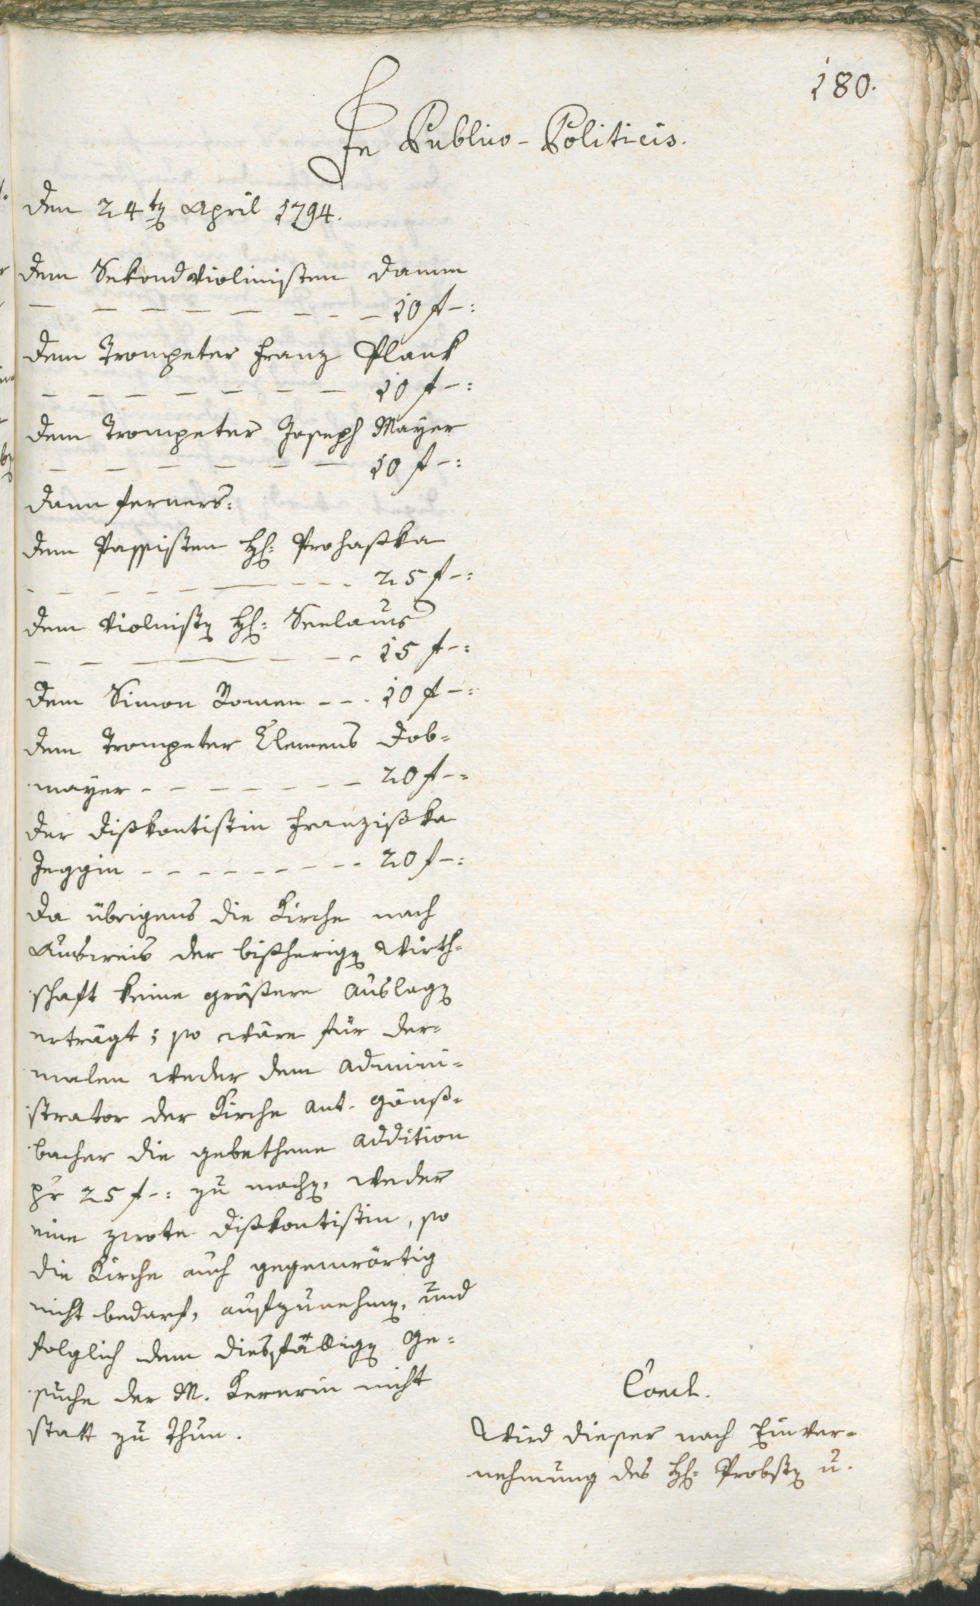 180.
In Publico-Politicis.
den 24ten April 1794.
dem Sekondviolinisten Damm
– – – – – – – – – 10 f –:
dem Trompeter Franz Plank
– – – – – – – – 10 f –:
dem Trompeter Joseph Mayer
– – – – – – – 10 f –:
dann ferners:
dem Passisten H: Prohaska
– – – – – – – – – 25 f –:
dem Violinisten H: Seelaus
– – – – – – – 15 f –:
dem Simon Romen – – – 10 f –:
dem Trompeter Clemens Dob-
mayer – – – – – – – – 20 f –:
der Diskantistin Franziska
Jeggin – – – – – – – – – 20 f –:
da übrigens die Kirche nach
Ausweis der bißherigen Wirth-
schaft keine größere Auslagen
erträgt; so wäre für der-
malen weder dem Admini-
strator der Kirche Ant. Gänß-
bacher die gebethene Addition
pr 25 f –: zu machen, weder
eine zwote Diskantistin, so
die Kirche auch gegenwärtig
nicht bedarf, aufzunehmen, und
folglich dem diesfälligen Ge-
suche der M. Kererin nicht
statt zu thun.
Concl.
Wird dieser nach Einver-
nehmung des H: Probsten u.